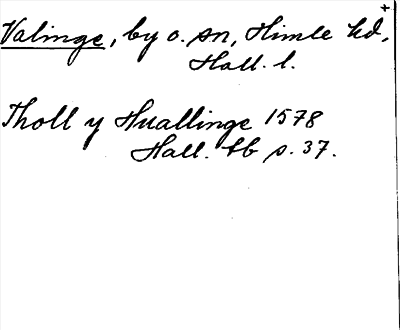 Valinge, by o. sn, Himle hd,
Hall. l.
Tholl y Huallinge 1578
Hall. bb s. 37.